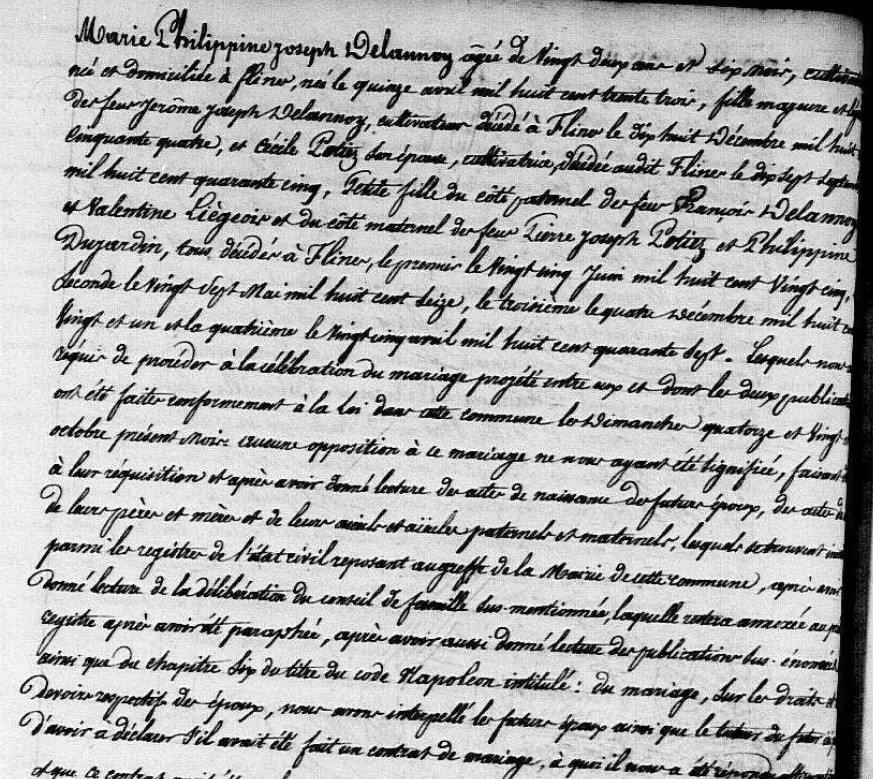 Marie Philippine Joseph Delannoy agée de Vingt deux ans et six mois,
née et domiciliée à Flines, née le quinze avril mil huit cent trente trois, fille majeure et
des feus Jerôme Joseph Delannoy, cultivateur décédé à Flines le dix huit Décembre mil huit
Cinquante quatre, et Cécile Potiez son épouse, cultivatrice, décédée audit Flines le dix sept
mil huit cent quarante cinq, Petite fille du côté paternel des feus François Delannoy
et Valentine Liégeois et du côté maternel des feus Pierre Joseph Potiez et Philippine
Dujardin, tous décédés à Flines, le premier le Vingt cinq Juin mil huit cent Vingt cinq,
Seconde le Vingt Sept Mai mil huit cent Seize, le troisième le quatre Décembre mil huit
Vingt et un et la quatrième le Vingt cinq avril mil huit cent quarante Sept. Lesquels nous
réquis de procéder à la célébration du mariage projeté entre eux et dont les deux
ont été faites conformément à la loi dans cette commune les Dimanches quatorze et Vingt
octobre présent Mois. Aucune opposition à ce mariage ne nous ayant été signifiée, faisant
à leur réquisition et après avoir donné lecture des actes de naissance des futurs époux, des actes de
de leurs pères et mères et de leurs aieuls et aïeules paternels et maternels, lesquels se trouvent
parmi les registres de l'état civil reposant au greffe de la Mairie de cette commune, après
donné lecture de la délibération du conseil de famille sus-mentionnée, laquelle restera annexée au
registre après avoir été paraphée, après avoir aussi donné lecture des publications sus-
ainsi que du chapitre Six du titre du code Napoleon intitulé : du mariage, Sur les droits et
Devoirs respectifs des époux, nous avons interpellé les futurs époux ainsi que le tuteur du futur
d'avoir à déclarer s'il avait été fait un contrat de mariage, à quoi il nous a été
et que ce contrat